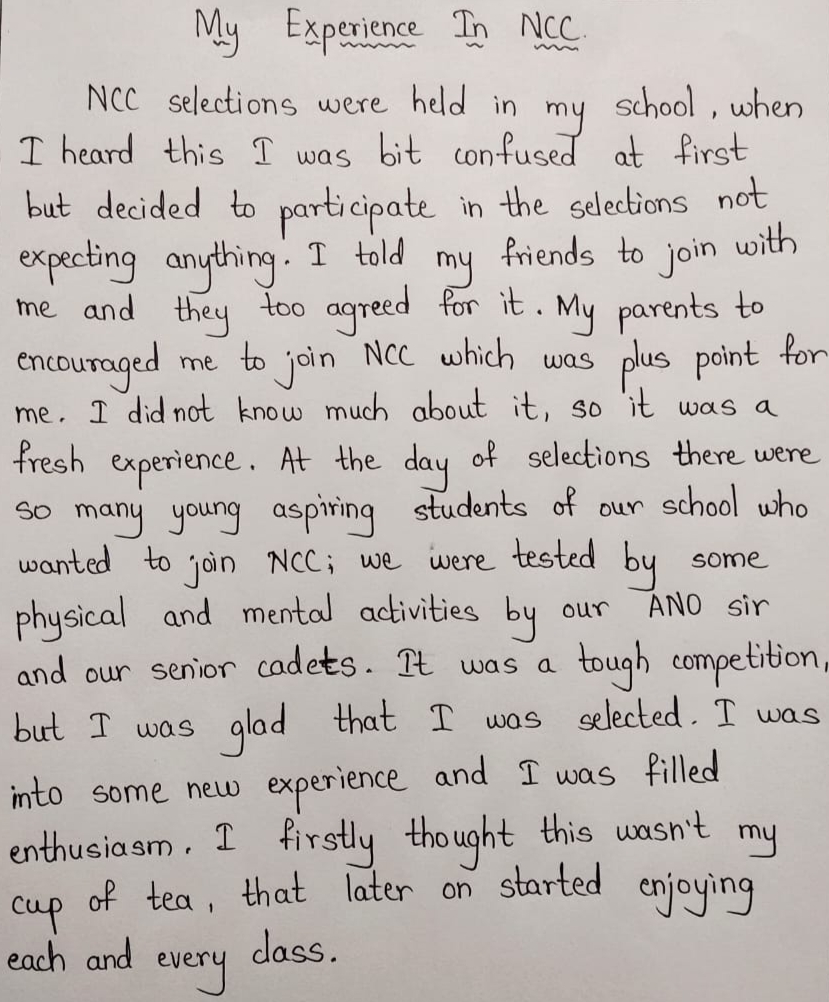 My Experience In NCC.
NCC selections were held in my school, when
I heard this I was bit confused at first
but decided to participate in the selections not
expecting anything. I told my friends to join with
me and they too agreed for it. My parents to
encouraged me to join NCC which was plus point for
me. I did not know much about it, so it was a
fresh experience. At the day of selections there were
so many young aspiring students of our school who
wanted to join NCC; we were tested by some
physical and mental activities by our ANO sir
and our senior cadets. It was a tough competition,
but I was glad that I was selected. I was
into some new experience and I was filled
enthusiasm. I firstly thought this wasn't my
cup of tea, that later on started enjoying
each and every class.